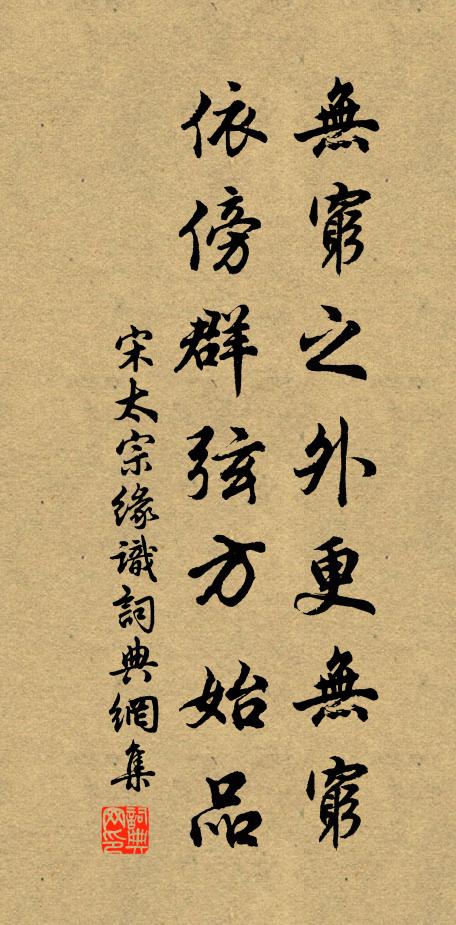 無窮之外更無窮
依傍群弦方始品
宋太宗緣識詞典網集
詞典网印